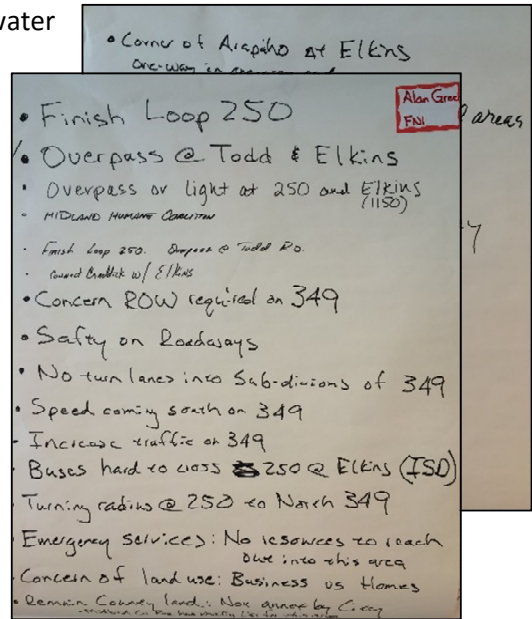 water
• Corner of Arapiho at Elkins
one-way in
areas
Alan Gree
FNI
• Finish Loop 250
• Overpass @ Todd & Elkins
• Overpass or light at 250 and Elkins
(1150)
- MIDLAND HUMANE COALITION
- Finish Loop 250. Overpass @ Todd RD.
- Craddick w/ Elkins
• Concern ROW required on 349
• Safty on Roadways
• No turn lanes into Sub-divisions of 349
• Speed coming south on 349
- Increase traffic on 349
- Buses hard to cross 250 @ Elkins (ISD)
- Turning radius @ 250 to North 349
- Emergency services: No resources to reach
out into this area
- Concern of land use: Business vs Homes
- Remain County land: Not annex by City